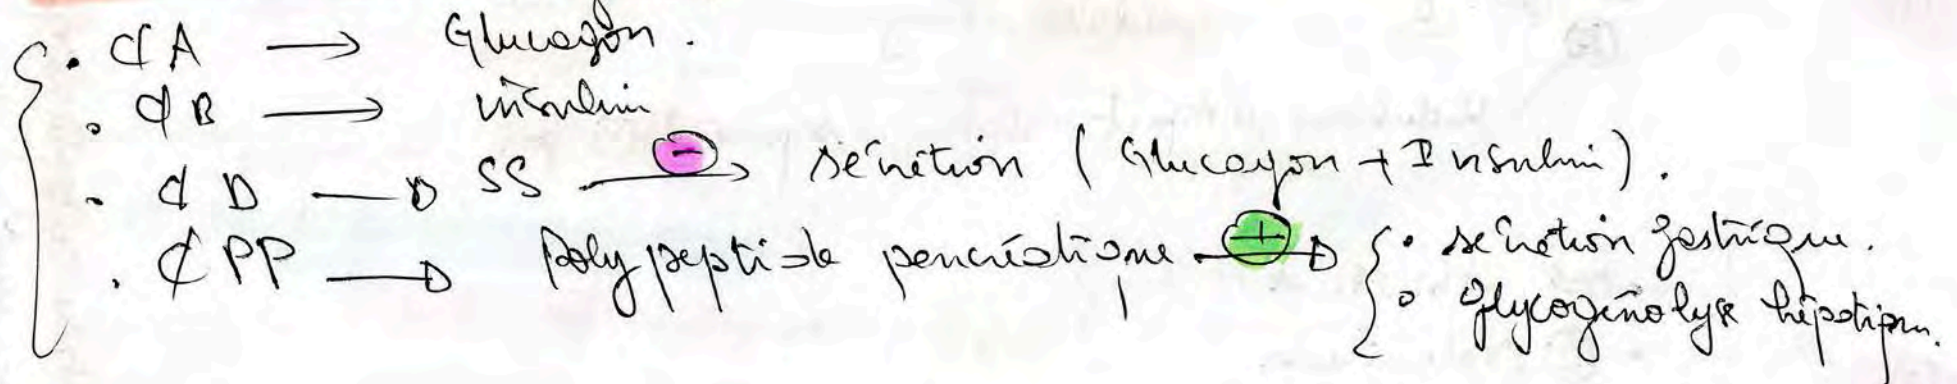 • ₵ A → Glucagon.
• ₵ B → insulin
• ₵ D → SS ⊖→ sécrétion (Glucagon + Insulin).
• ₵ PP → Polypeptide pancréatique ⊕→ { • sécrétion gastrique.
• glycogénolyse hépatique.